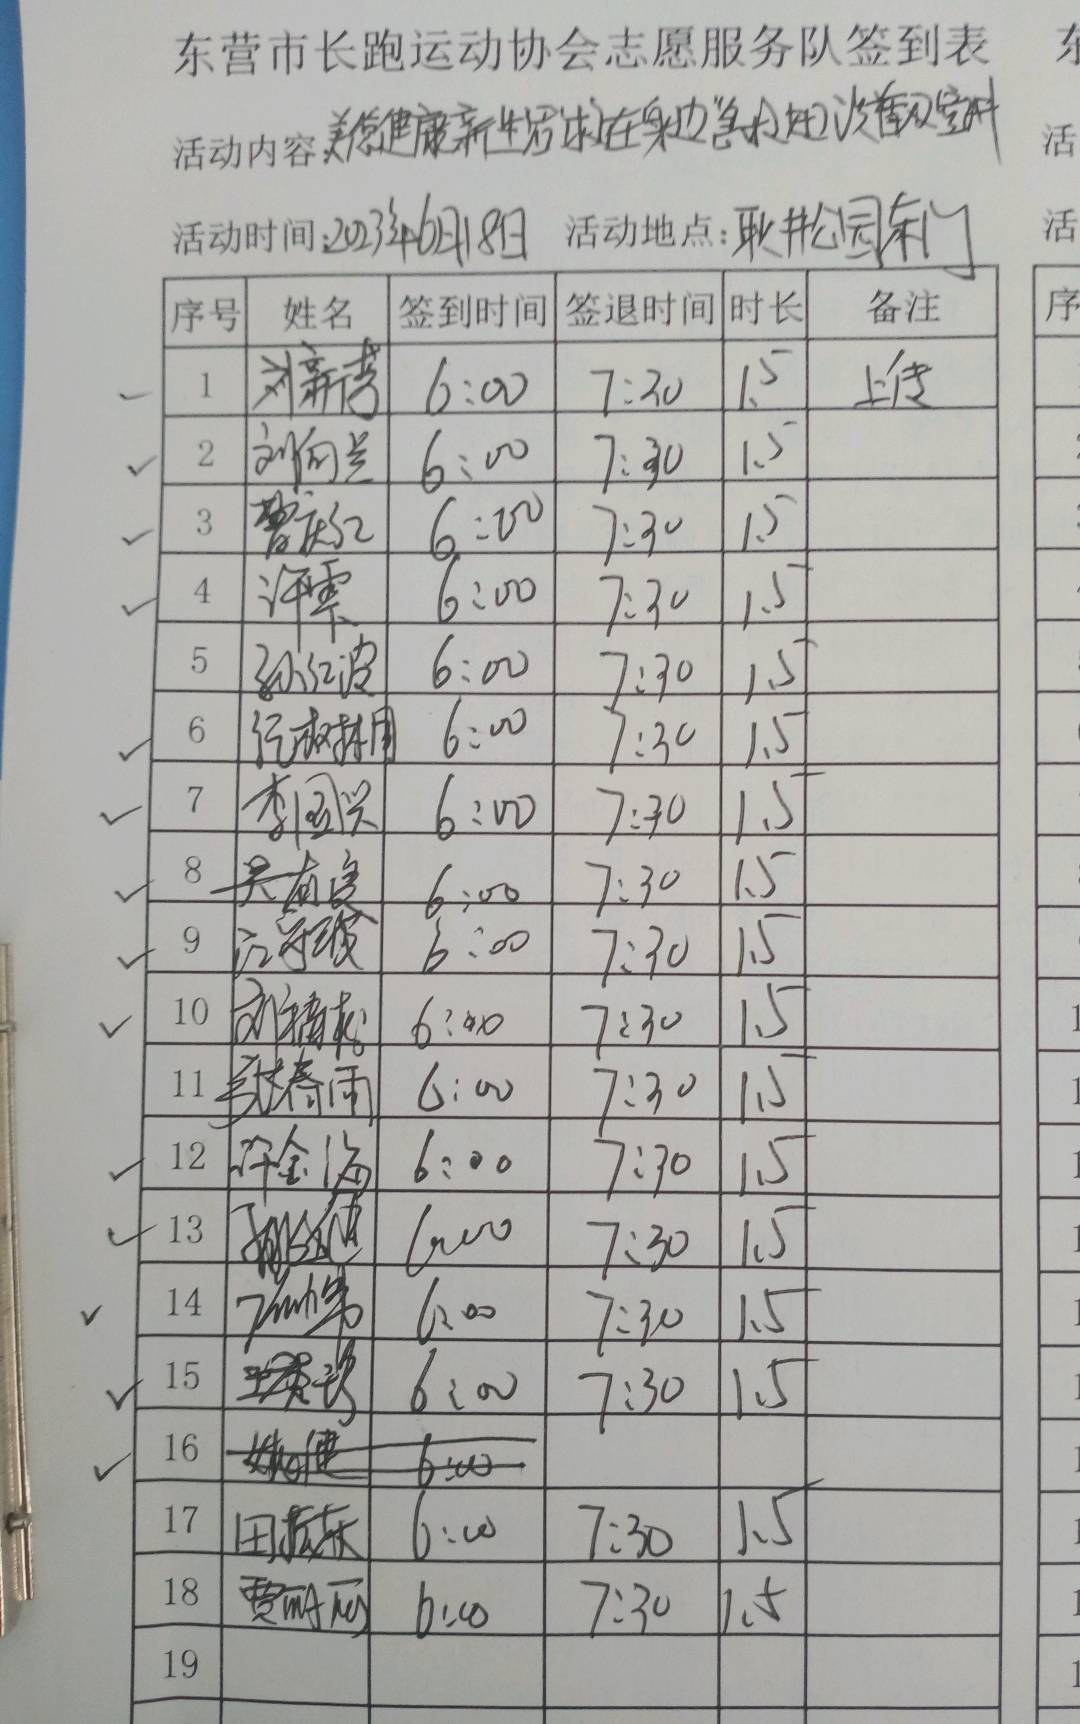 东营市长跑运动协会志愿服务队签到表
活动内容:美德健康新生活 在身边
活动时间:2023年6月18日 活动地点:耿井公园东门
序号 姓名 签到时间 签退时间 时长 备注
1 刘新 6:00 7:30 1.5 上传
2 刘向兰 6:00 7:30 1.5
3 曹庆红 6:00 7:30 1.5
4 许霞 6:00 7:30 1.5
5 孙红波 6:00 7:30 1.5
6 6:00 7:30 1.5
7 李国兴 6:00 7:30 1.5
8 吴有良 6:00 7:30 1.5
9 6:00 7:30 1.5
10 刘 6:00 7:30 1.5
11 张春雨 6:00 7:30 1.5
12 许金海 6:00 7:30 1.5
13 6:00 7:30 1.5
14 6:00 7:30 1.5
15 王 6:00 7:30 1.5
16 6:00
17 田 6:00 7:30 1.5
18 贾 6:00 7:30 1.5
19